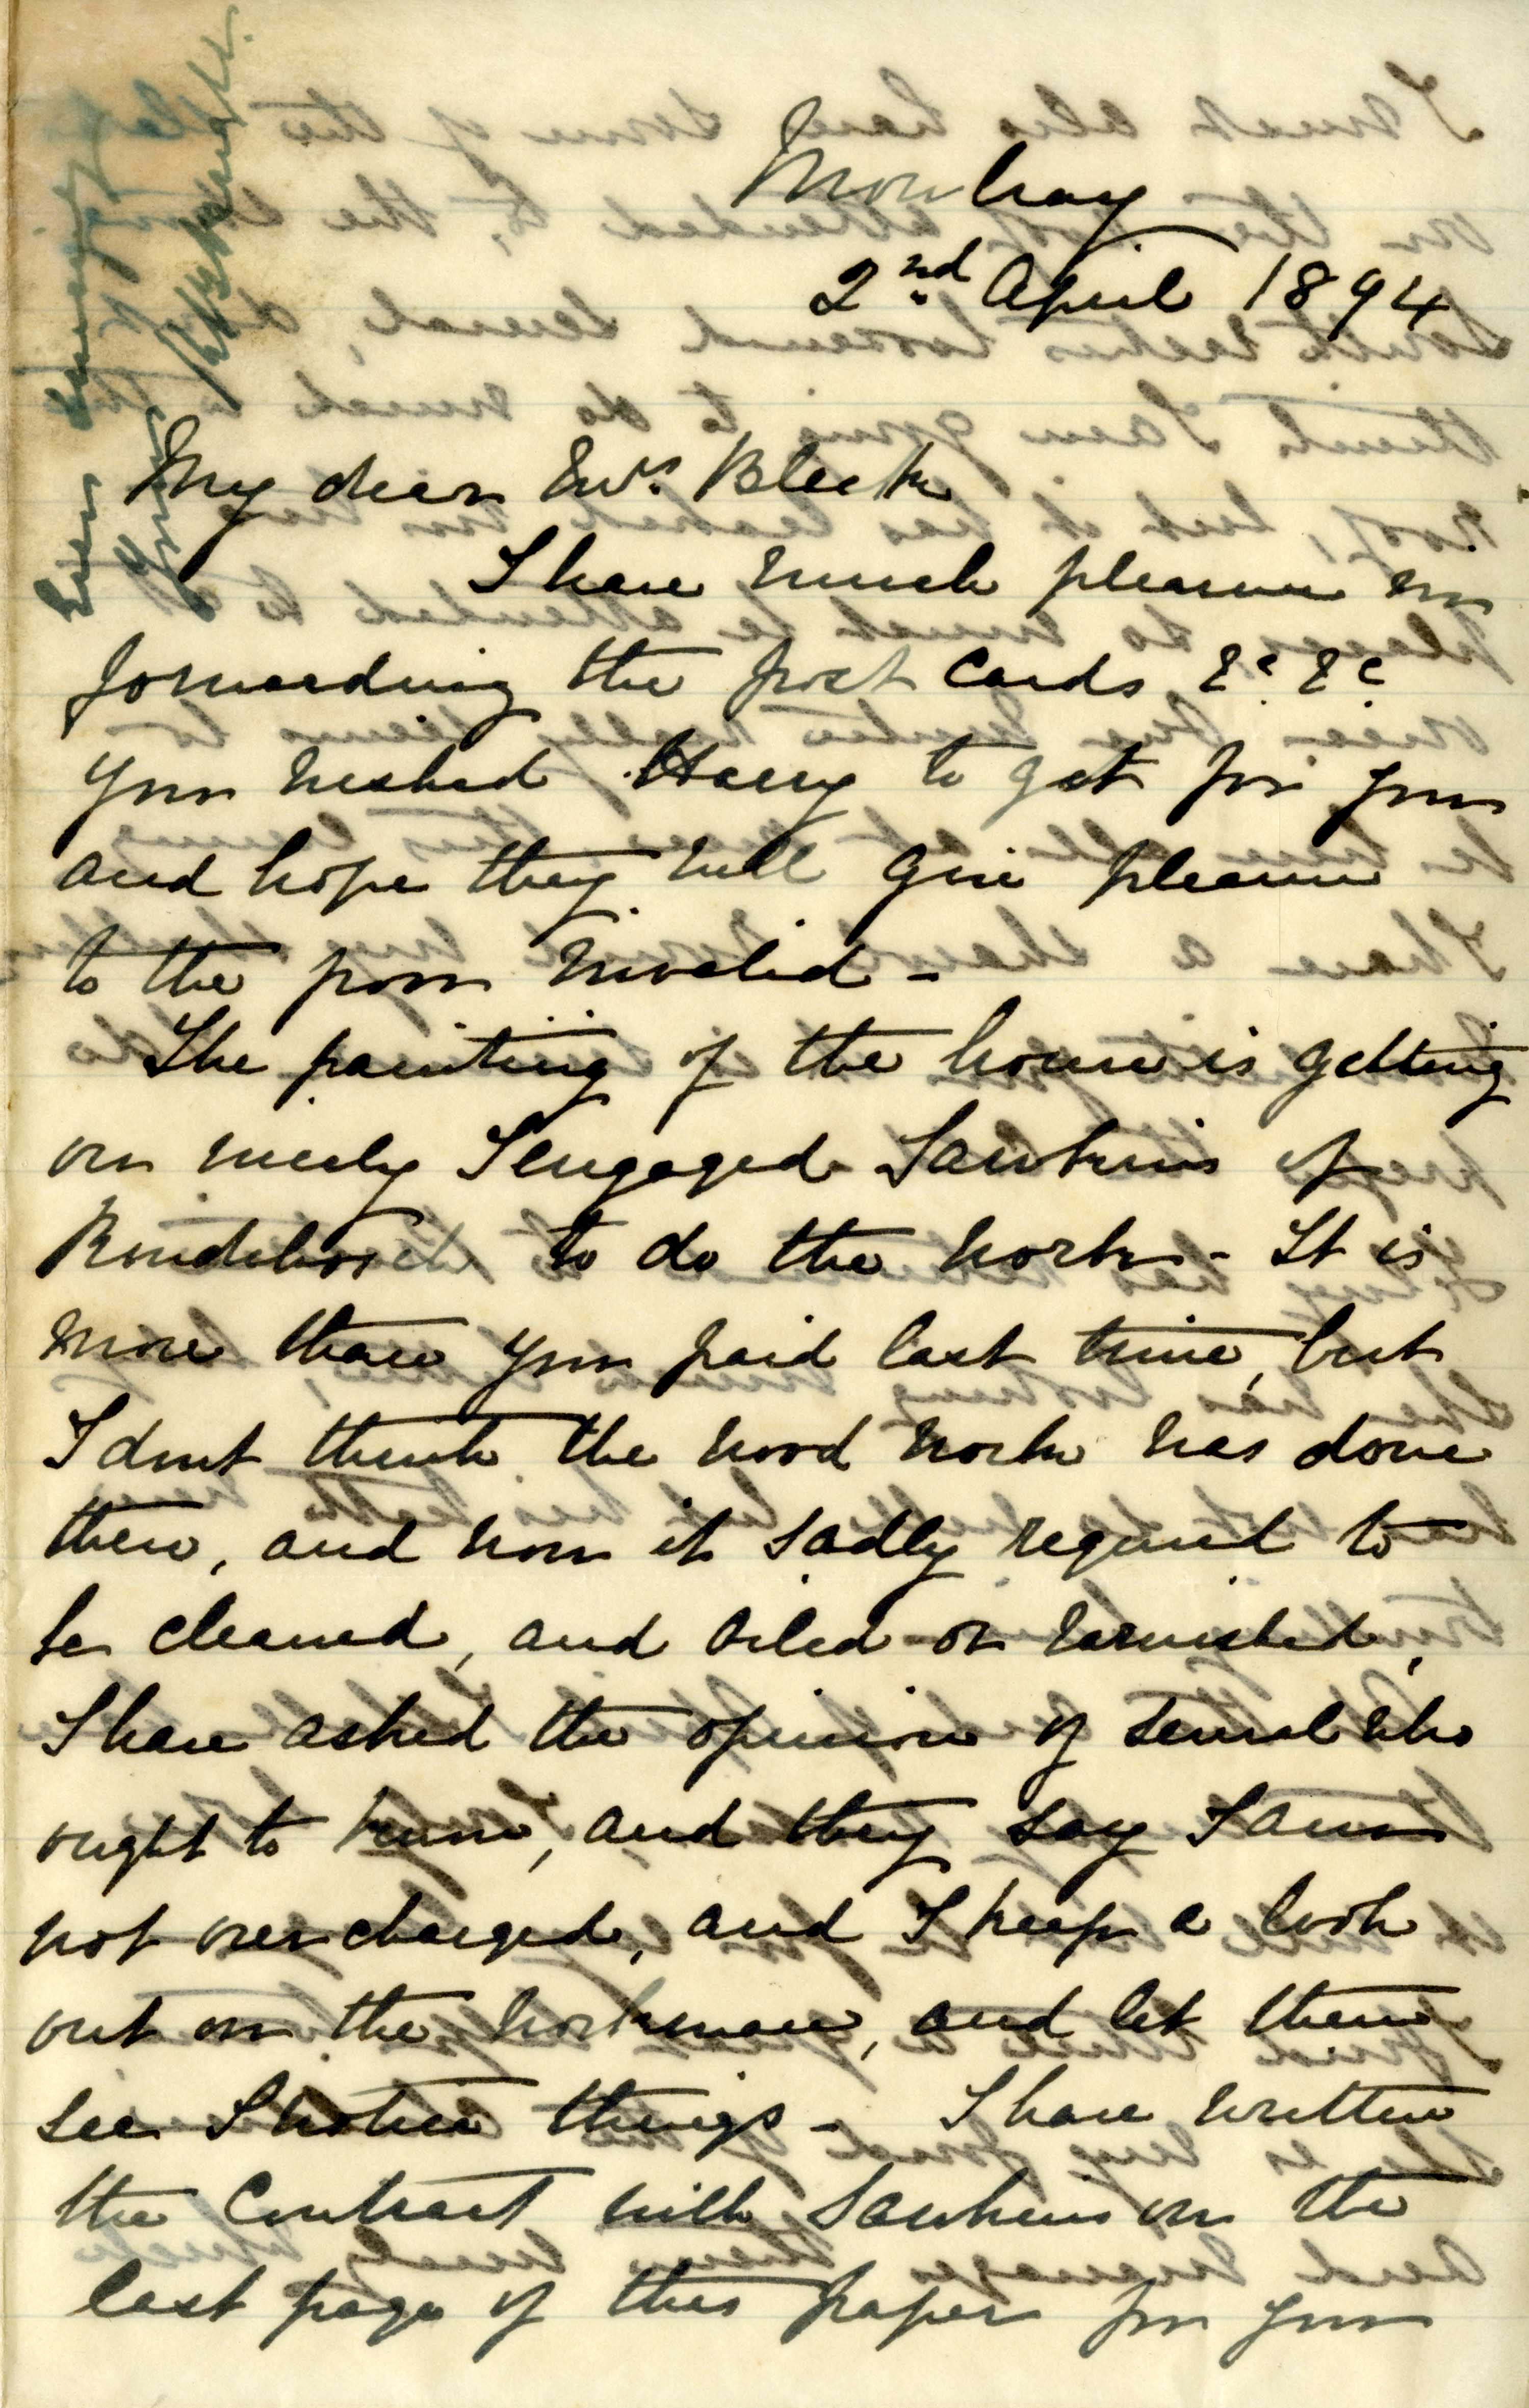 Mowbray
2nd April 1894
My dear Mrs. Bleek
I have much pleasure in
forwarding the post cards &c. &c.
you wished Harry to get for you
and hope they will give pleasure
to the poor invalid -
The painting of the house is getting
on nicely I engaged Sawkins of
Rondebosch to do the work - It is
more than you paid last time, but
I dont think the wood work was done
then, and now it sadly required to
be cleaned, and oiled or varnished,
I have asked the opinion of several who
ought to know, and they say I am
not over charged, and I keep a look
out on the workmen, and let them
see I notice things - I have written
the Contract with Sawkins on the
last page of this paper for you